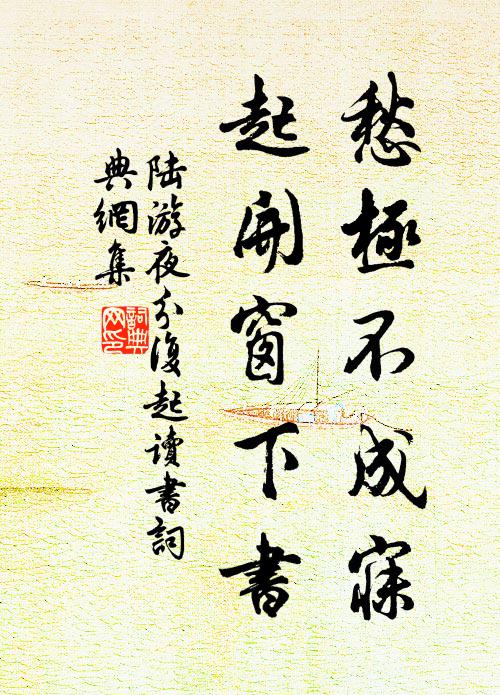 愁極不成寐
起開窗下書
陸游夜分復起讀書詞
典網集
詞典网印